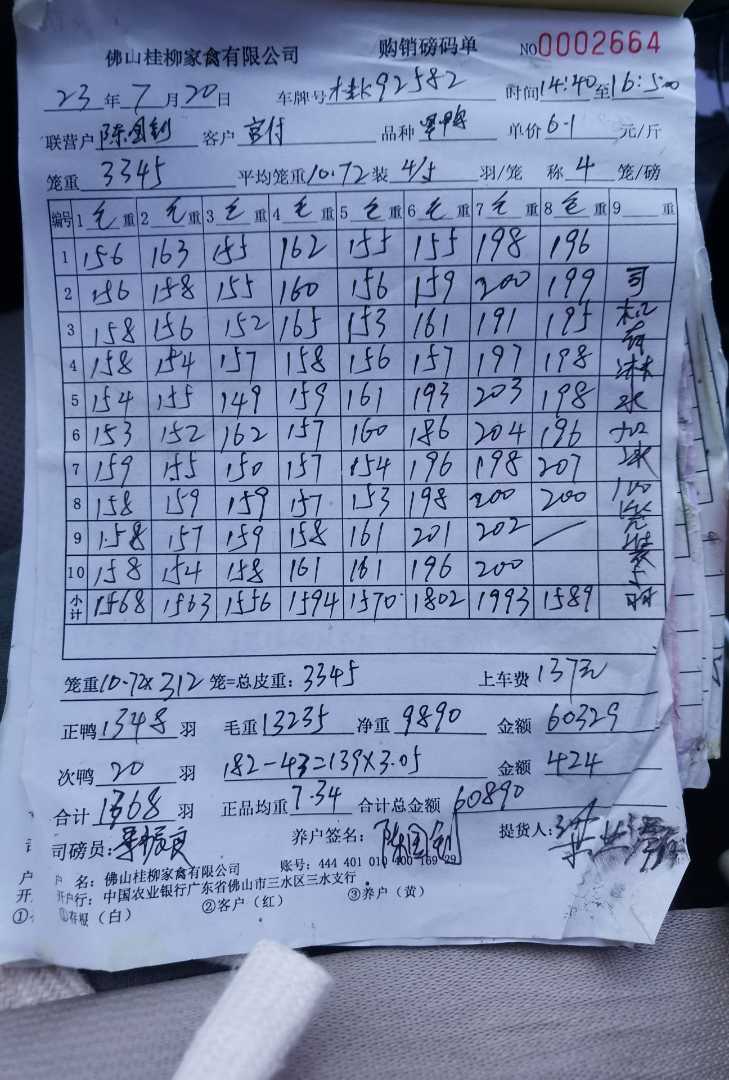 佛山桂柳家禽有限公司 购销磅码单 NO0002664
23年7月20日 车牌号桂K92582 时间14:40至16:500
联营户陈国钊 客户 品种 单价6.1元/斤
笼重3345 平均笼重10.72装4/5羽/笼 称4笼/磅
编号 1毛重 2毛重 3毛重 4毛重 5毛重 6毛重 7毛重 8毛重 9重
1 156 163 155 162 155 155 198 196
2 156 158 155 160 156 159 200 199
3 158 156 152 165 153 161 191 195
4 158 154 157 158 156 157 197 198
5 154 155 149 159 161 193 203 198
6 153 152 162 157 160 186 204 196
7 159 155 150 157 154 196 198 207
8 158 159 159 157 153 198 200 200
9 158 157 159 158 161 201 202
10 158 154 158 161 161 196 200
小计 1568 1563 1556 1594 1570 1802 1993 1589
笼重10.72x312笼=总皮重:3345 上车费137元
正鸭1348羽 毛重13235 净重9890 金额60329
次鸭20羽 182-43=139x3.05 金额424
合计1368羽 正品均重7.34 合计总金额60890
司磅员: 养户签名:陈国钊 提货人:
户名:佛山桂柳家禽有限公司 账号:444 401 010 400 169 29
开户行:中国农业银行广东省佛山市三水区三水支行
①存根(白) ②客户(红) ③养户(黄)